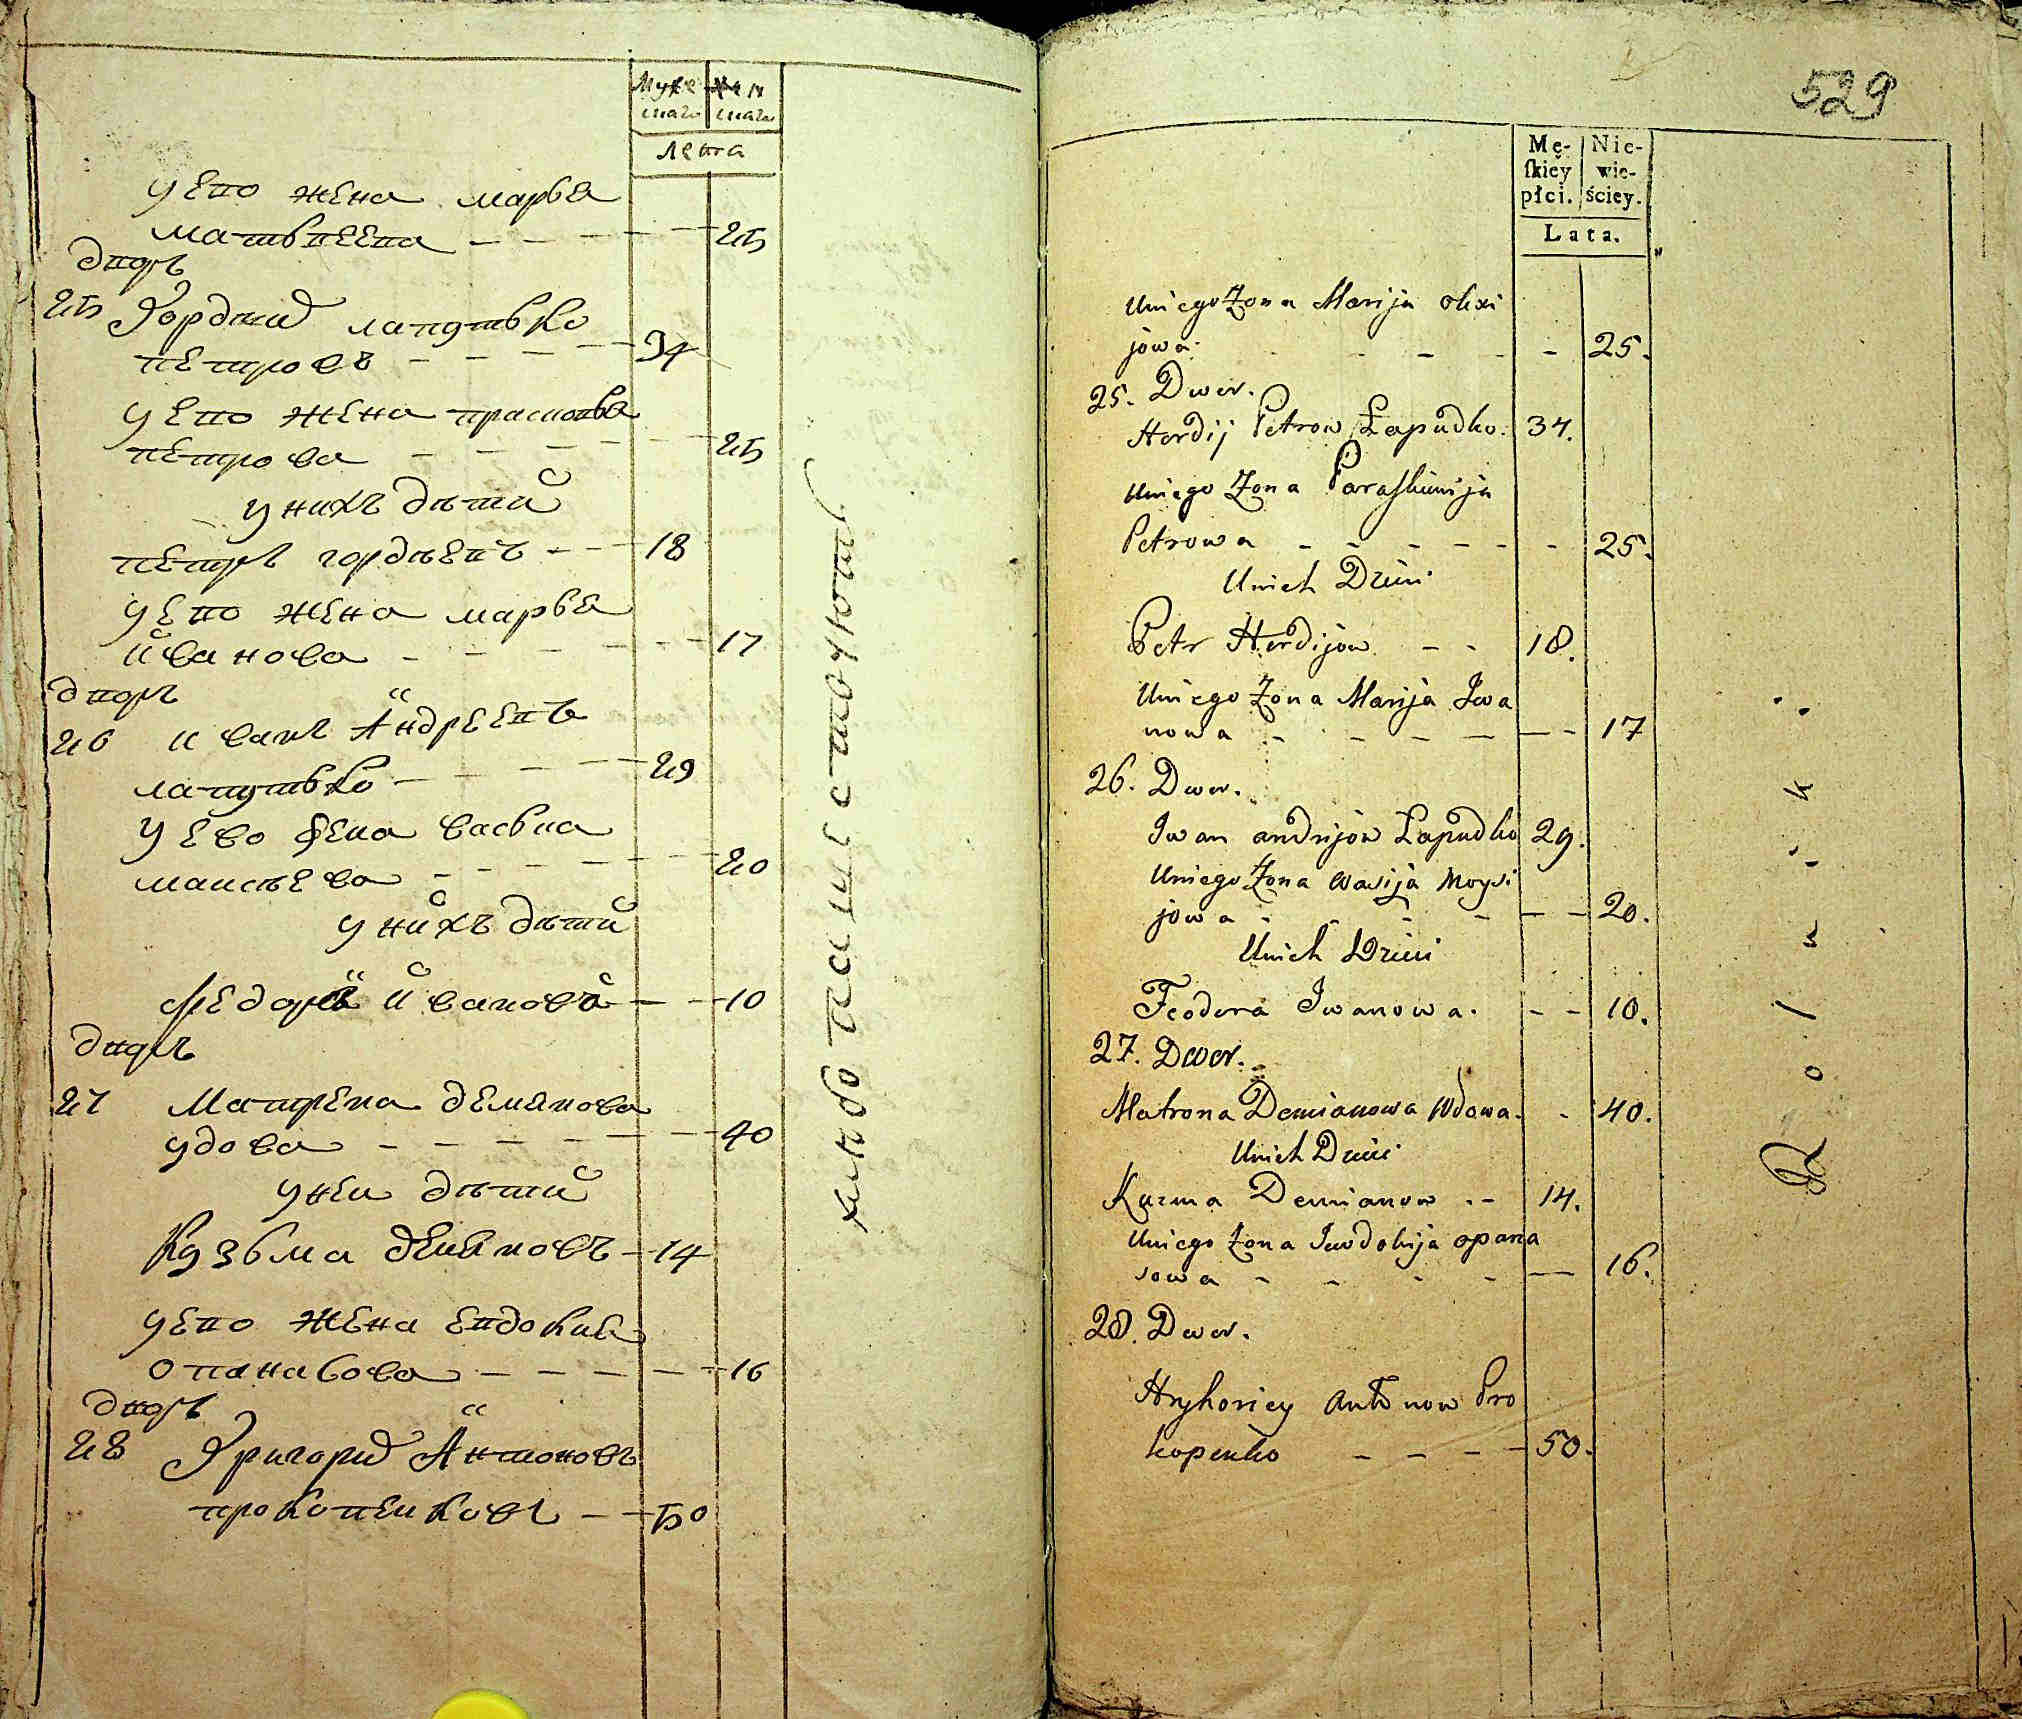 Муже
ска
Жен
ска
Лѣта
у ево жена марья
матвеева - - - - - 25
двор
25 Гордий лапутько
петровъ - - - - 34
у ево жена прасковья
петрова - - - - 25
у нихъ дѣтей
петръ гордѣевъ - - 18
у ево жена марья
иванова - - - - - 17
дворъ
26 иванъ Андреевъ
лапутько - - - - 29
у ево жена васьиа
маисѣева - - - - - 20
у нихъ дѣтей
федора иванова - - 10
дворъ
27 Матрена демянова
удова - - - - - - 40
у неи дѣтей
Кузьма демяновъ - 14
у ево жена евдокия
опанасова - - - - - 16
дворъ
28 Григорий Антоновъ
прокопенковъ - - 50
хлѣбопашествують
529
Mę-
ſkiéy
płci.
Nie-
wie-
ściey.
Lata.
Uniego Żona Marija Olixi
jowa - - - - - 25.
25. Dwor.
Hordij Petrow Łapudko. 34.
Uniego Żona Paraskiewija
Petrowa - - - - - - 25.
Unich Dzieci
Petr Hordijow - - 18.
Uniego Żona Marija Iwa
nowa - - - - - - 17
26. Dwor.
Iwan andrijow Łapudko 29.
Uniego Żona Wasija Moysi
jowa - - - - - - 20.
Unich Dzieci
Feodora Iwanowa. - - 10.
27. Dwor.
Matrona Demianowa Wdowa. - 40.
Unich Dzieci
Kuzma Demianow - - 14.
Uniego Żona Iwdokija opana
sowa - - - - - - 16.
28. Dwor.
Hryhoriey Antonow Pro
kopenko - - - - 50.
Rolnik: